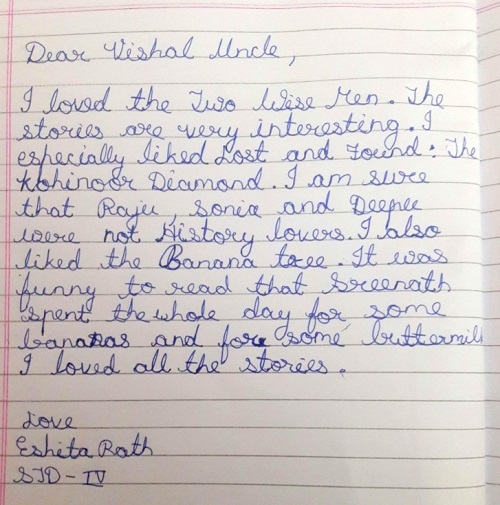 Dear Vishal Uncle,
I loved the Two Wise Men. The
stories are very interesting. I
especially liked Lost and Found: The
Kohinoor Diamond. I am sure
that Raju, Sonia and Deepee
were not History lovers. I also
liked the Banana tree. It was
funny to read that Sreenath
spent the whole day for some
bananas and for some buttermil
I loved all the stories.
Love
Eshita Rath
STD-IV